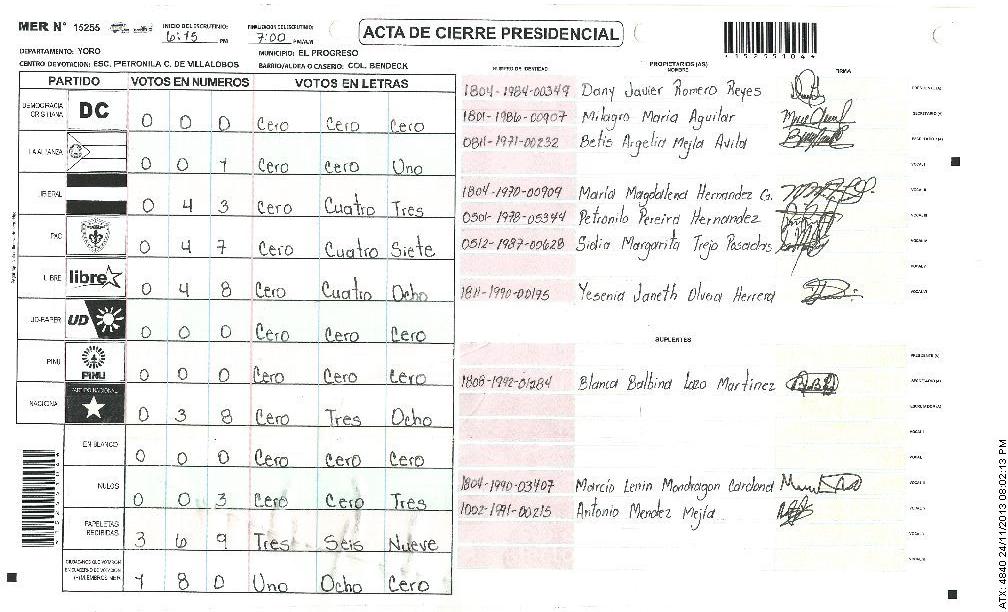 MER N° 15255
INICIO DEL ESCRUTINIO:
6:15 PM
FINALIZACION DEL ESCRUTINIO:
7:00 PM/A.M
ACTA DE CIERRE PRESIDENCIAL
DEPARTAMENTO: YORO
MUNICIPIO: EL PROGRESO
CENTRO DE VOTACION: ESC. PETRONILA C. DE VILLALOBOS
BARRIO/ALDEA O CASERIO: COL. BENDECK
PARTIDO VOTOS EN NUMEROS VOTOS EN LETRAS
DEMOCRACIA CRISTIANA DC 0 0 0 Cero Cero Cero
LA ALIANZA 0 0 1 Cero Cero Uno
LIBERAL 0 4 3 Cero Cuatro Tres
PAC 0 4 7 Cero Cuatro Siete
LIBRE libre 0 4 8 Cero Cuatro Ocho
UD-FAPER UD 0 0 0 Cero Cero Cero
PINU PINU 0 0 0 Cero Cero Cero
NACIONAL PARTIDO NACIONAL 0 3 8 Cero Tres Ocho
EN BLANCO 0 0 0 Cero Cero Cero
NULOS 0 0 3 Cero Cero Tres
PAPELETAS RECIBIDAS 3 6 9 Tres Seis Nueve
CIUDADANOS QUE VOTARON
1 8 0 Uno Ocho Cero
NUMERO DE IDENTIDAD
PROPIETARIOS (AS)
NOMBRE
FIRMA
1804-1984-00349 Dany Javier Romero Reyes
1801-1986-00907 Milagro Maria Aguilar
0811-1971-00232 Betis Argelia Mejia Avila
1804-1970-00909 Maria Magdalena Hernandez G.
0501-1978-05344 Petronilo Pereira Hernandez
0512-1987-00628 Sidia Margarita Trejo Posadas
1811-1990-00195 Yesenia Janeth Olvera Herrera
SUPLENTES
1808-1992-01284 Blanca Balbina Lazo Martinez
1804-1990-03407 Marcio Lenin Mondragon Cardona
1002-1991-00215 Antonio Mendez Mejia
ATX: 4840 24/11/2013 08:02:13 PM